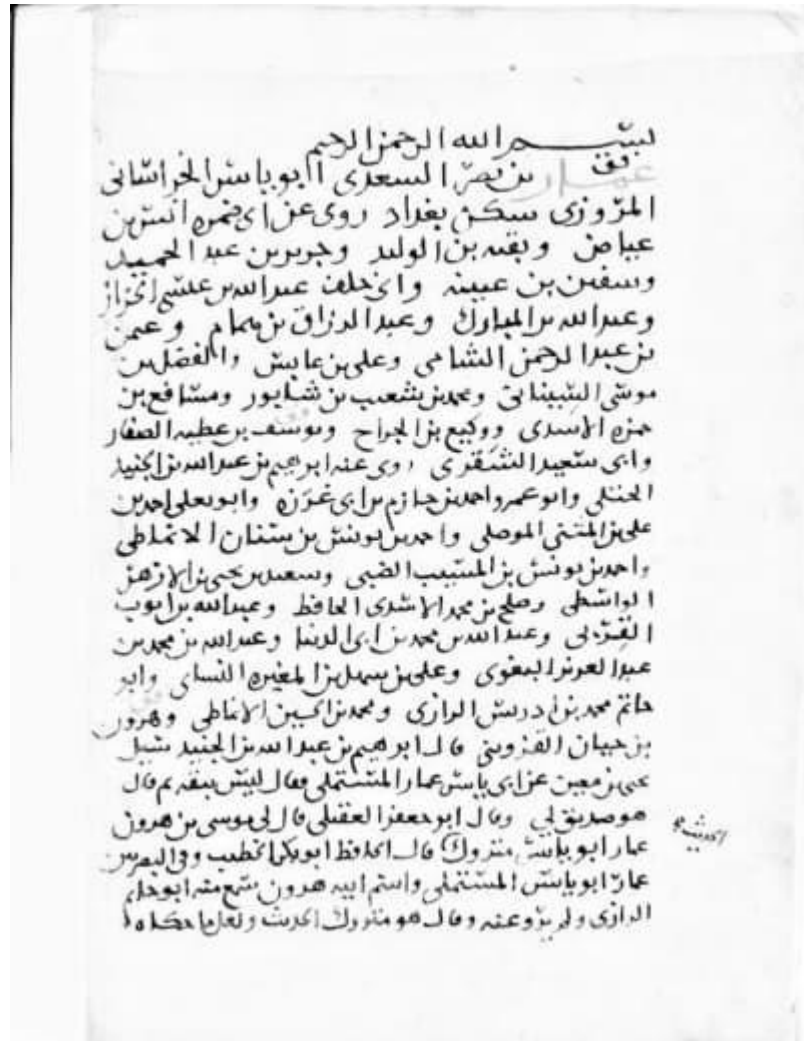 بسم الله الرحمن الرحيم
عمار بن نصر السعدى ابو ياسر الخراسانى
المروزى سكن بغداد روى عن ابى ضمره انس بن
عياض وبقيه بن الوليد وجرير بن عبد الحميد
وسفين بن عيينه وابى خلف عبد الله بن عيسى الخزاز
وعبد الله بن المبارك وعبد الرزاق بن همام وعثمن
بن عبد الرحمن الشامى وعلى بن عابس والفضل بن
موسى السينانى ومحمد بن شعيب بن شابور ومسافع بن
حمزه الاسدى ووكيع بن الجراح ويوسف بن عطيه الصفار
وابى سعيد الشقرى روى عنه ابرهيم بن عبد الله بن الجنيد
الختلى وابو عمرو احمد بن حازم بن ابى غرزه وابو يعلى احمد بن
على بن المثنى الموصلى واحمد بن يونس بن سنان الانماطى
واحمد بن يونس بن المسيب الضبى وسعيد بن يحيى بن الازهر
الواسطى وصلح بن محمد الاسدى الحافظ وعبد الله بن ايوب
القربى وعبد الله بن محمد بن ابى الدنيا وعبد الله بن محمد بن
عبد العزيز البغوى وعلى بن سهل بن المغيره النساى وابو
حاتم محمد بن ادريس الرازى ومحمد بن الحسين الانماطى وهرون
بن حيان القزوينى قال ابرهيم بن عبد الله بن الجنيد سيل
يحيى بن معين عن ابى ياسر عمار المستملى فقال ليس بثقه ثم قال
هو صديق لى وقال ابو جعفر العقيلى قال لى موسى بن هرون
عمار ابو ياسر متروك قال الحافظ ابو بكر الخطيب وفى البصريين
عمار ابو ياسر المستملى واسم ابيه هرون سمع منه ابو حاتم
الرازى ولم يرو عنه وقال هو متروك الحديث ولعل ما حكاه
الحديث